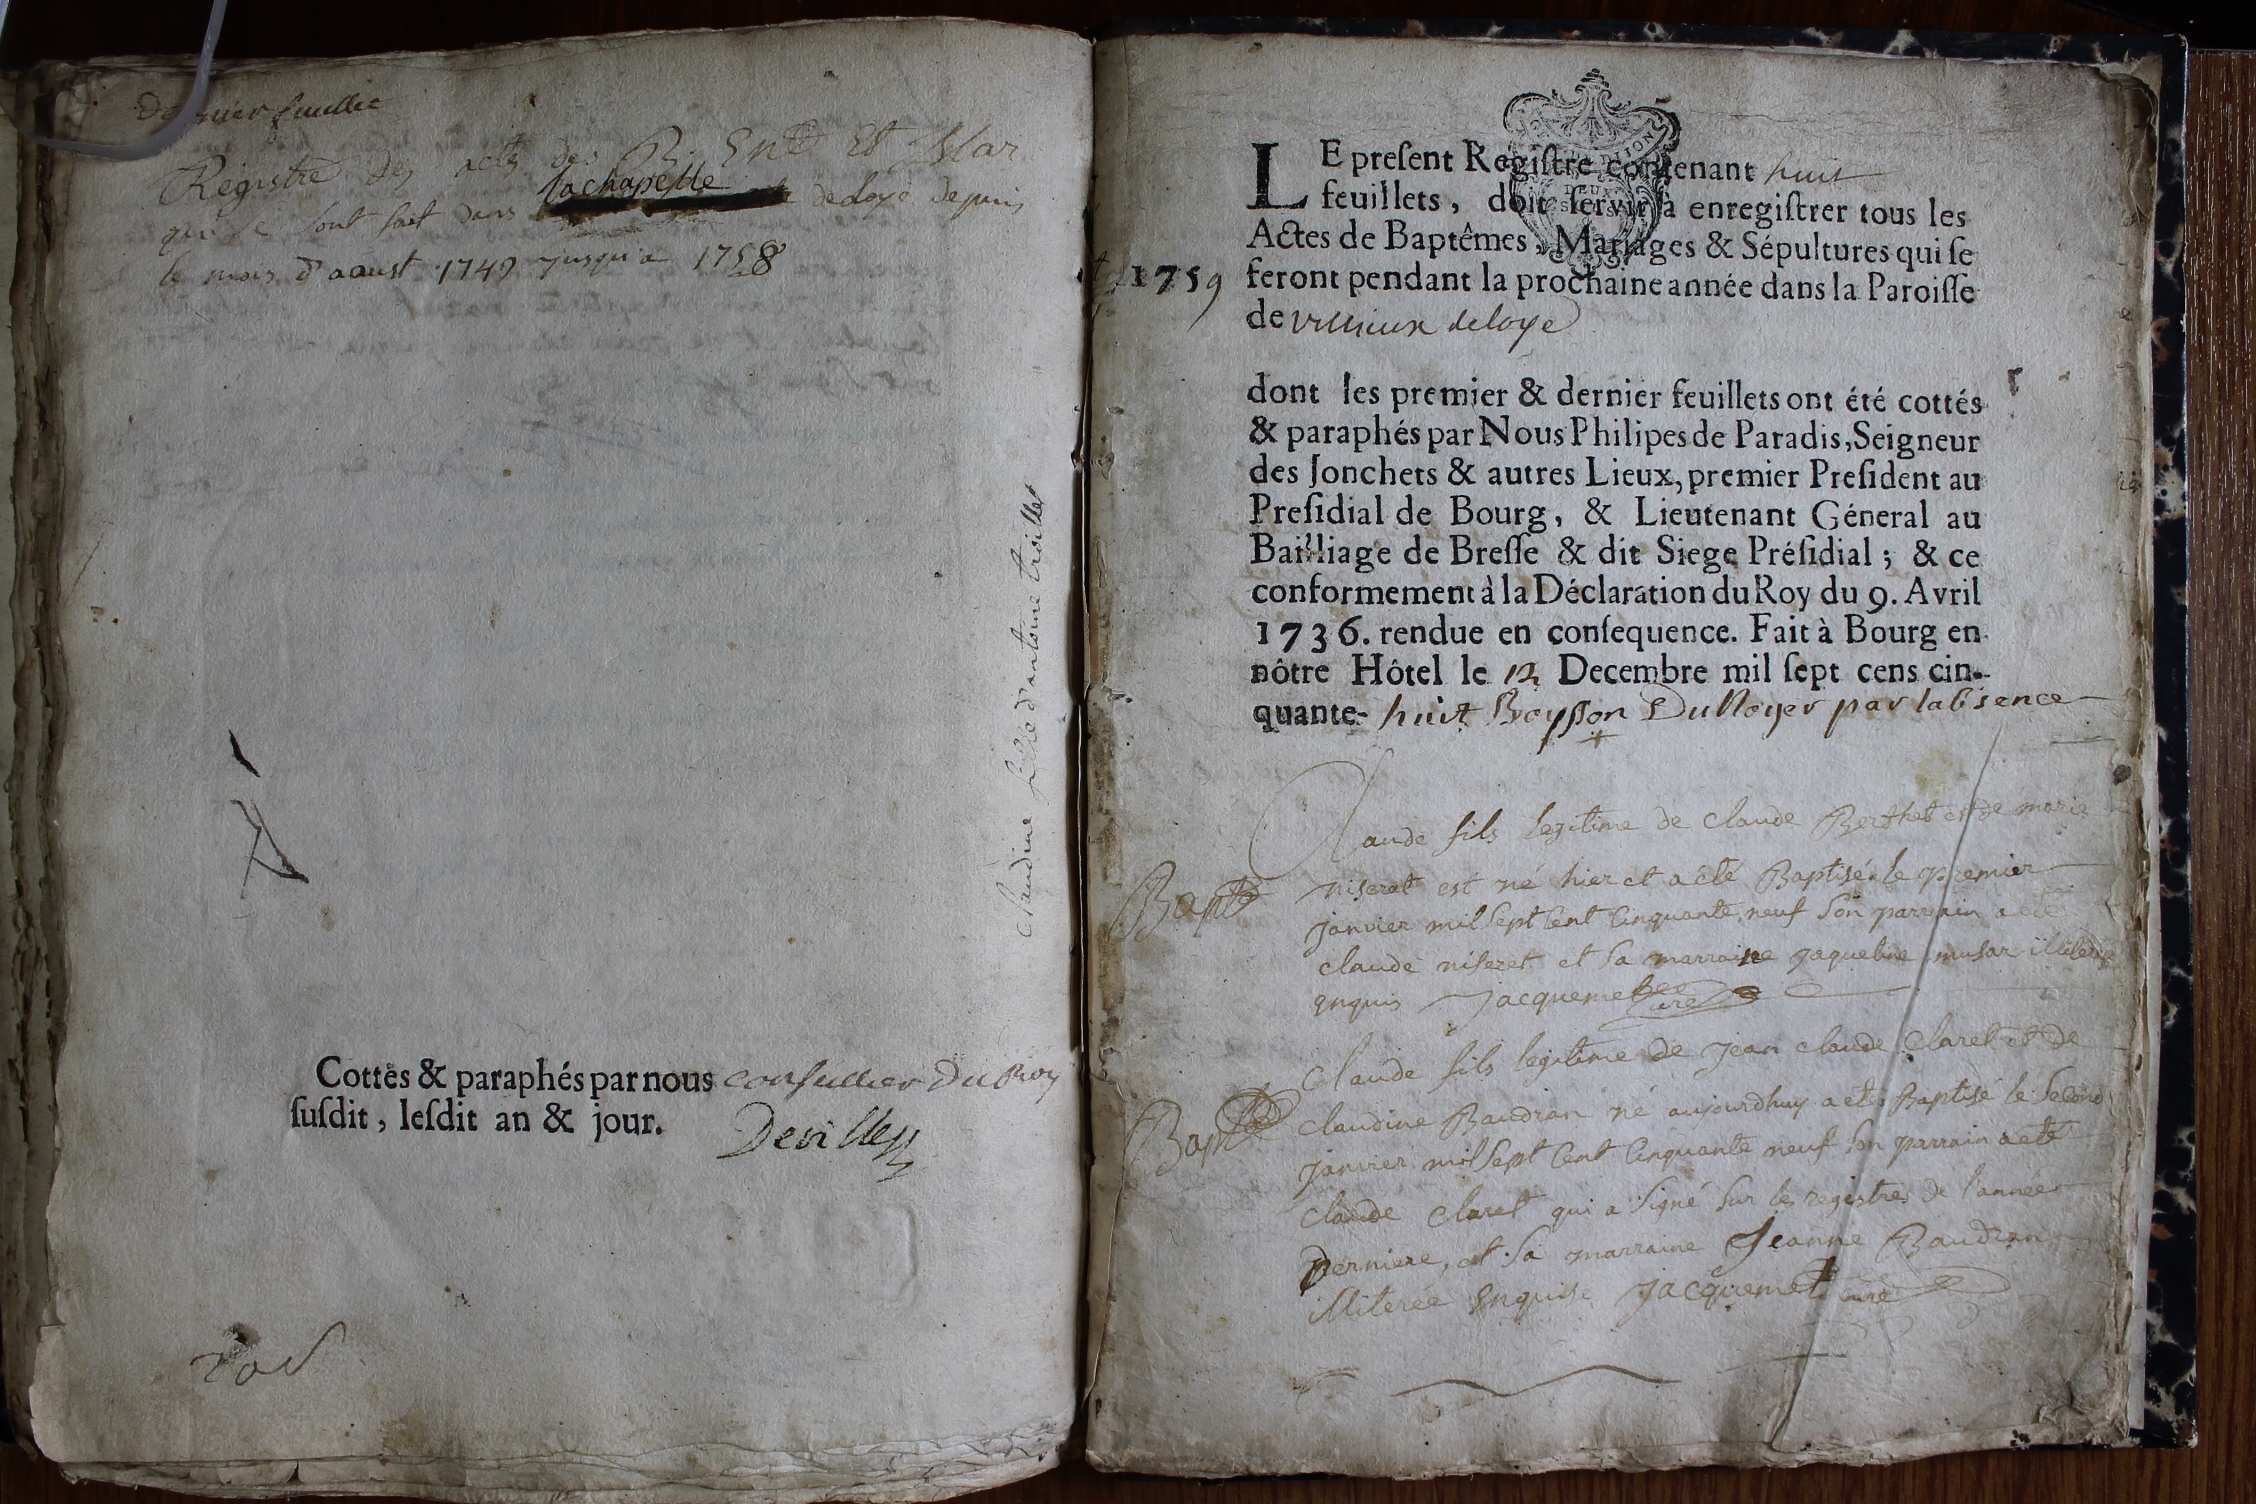 Dernier feuillet
Registre des actes des B. Ent Et Mar
qui se sont fait dans lachapelle deloye depuis
le mois d'aaust 1749 jusqu'a 1758
claudine fille d'antoine
Cottés & paraphés par nous conseiller Du Roy
suſdit, leſdit an & jour.
Devilley
1759
LE preſent Regiſtre contenant huit
feuillets, doit ſervir à enregiſtrer tous les
Actes de Baptêmes, Mariages & Sépultures qui ſe
feront pendant la prochaine année dans la Paroiſſe
de villieux deloye
dont les premier & dernier feuillets ont été cottés
& paraphés par Nous Philipes de Paradis, Seigneur
des Jonchets & autres Lieux, premier Preſident au
Preſidial de Bourg, & Lieutenant Géneral au
Bailliage de Breſſe & dit Siege Préſidial; & ce
conformement à la Déclaration du Roy du 9. Avril
1736. rendue en conſequence. Fait à Bourg en
nôtre Hôtel le 12 Decembre mil ſept cens cin-
quante- huit Boysson DuNoyer par labsence
Claude fils legitime de claude Berthet et de marie
Bapte niseret est né hier et a été Baptisé le premier
janvier mil sept cent cinquante neuf son parrain a été
claude niseret et sa marraine jaqueline musar
enquis jacquemet curé
Claude fils legitime de jean claude claret et de
Bapte claudine Baudran né aujourdhuy a eté Baptisé le second
janvier mil sept cent cinquante neuf son parrain a eté
claude claret qui a signé sur les registres de l'année
derniere, et sa marraine Jeanne Baudran
illiterée enquise jacquemet curé